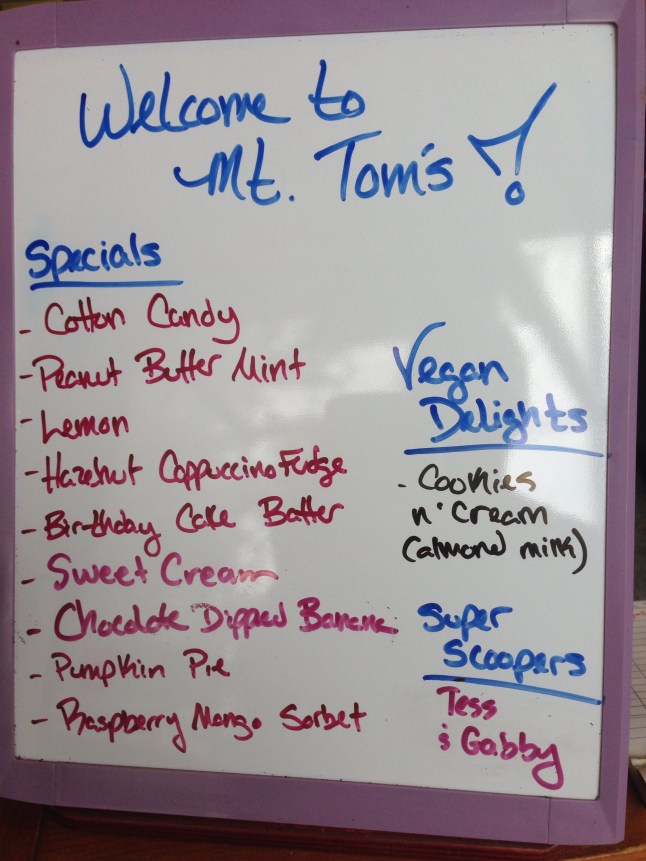 Welcome to
Mt. Tom's!
Specials
- Cotton Candy
- Peanut Butter Mint
- Lemon
- Hazelnut Cappuccino Fudge
- Birthday Cake Batter
- Sweet Cream
- Chocolate Dipped Banana
- Pumpkin Pie
- Raspberry Mango Sorbet
Vegan
Delights
- Cookies
n' Cream
(almond milk)
Super
Scoopers
Tess
& Gabby